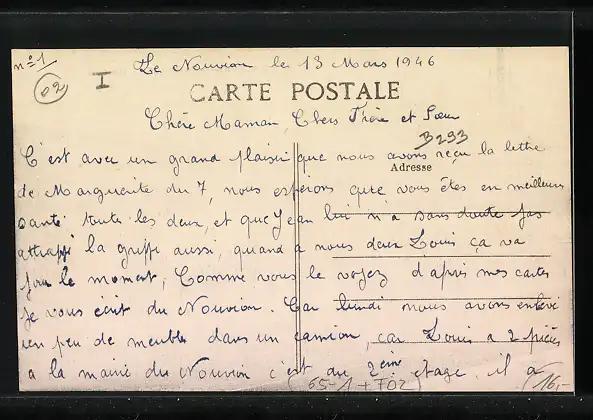 nº 1
Le Nouvion le 13 Mars 1946
02
I
CARTE POSTALE
Chère Maman, Chers Frère et Sœur
B293
C'est avec un grand plaisir que nous avons reçu la lettre
Adresse
de Marguerite du 7, nous espérons que vous êtes en meilleure
santé toutes les deux, et que Jean lui n'a sans doute pas
attrappé la grippe aussi, quand à nous deux Louis ça va
pour le moment, Comme vous le voyez d'après mes cartes
je vous écrit du Nouvion. Car lundi nous avons enlevé
un peu de meuble dans un camion, car Louis a 2 pièces
a la mairie du Nouvion c'est au 2ème etage, il a
(65-1+702)
16,-